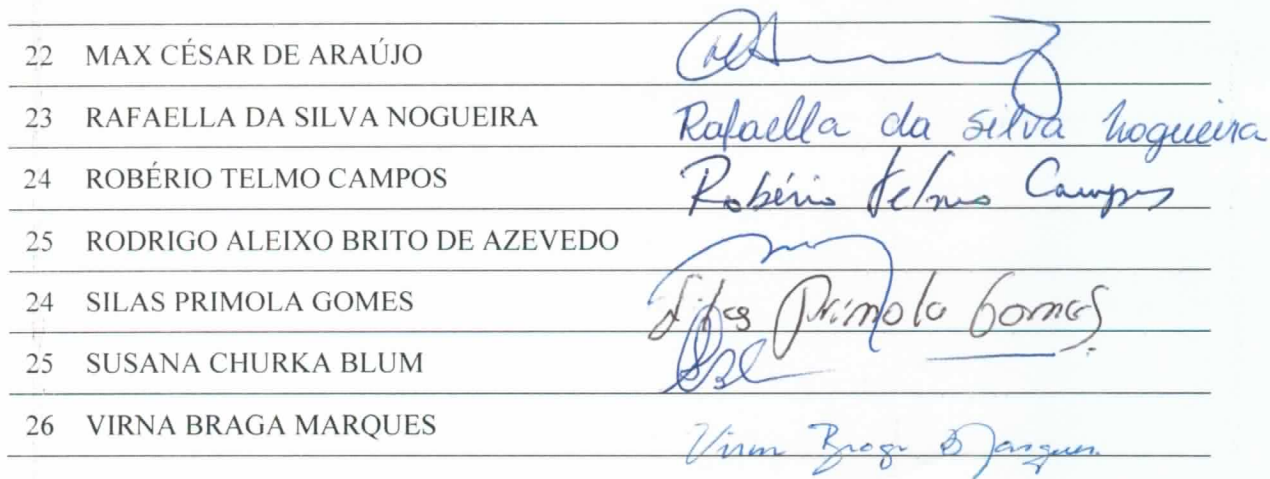 22 MAX CÉSAR DE ARAÚJO
23 RAFAELLA DA SILVA NOGUEIRA Rafaella da silva nogueira
24 ROBÉRIO TELMO CAMPOS Robério Telmo Campos
25 RODRIGO ALEIXO BRITO DE AZEVEDO
24 SILAS PRIMOLA GOMES Silas Primola Gomes
25 SUSANA CHURKA BLUM
26 VIRNA BRAGA MARQUES Virna Braga Marques